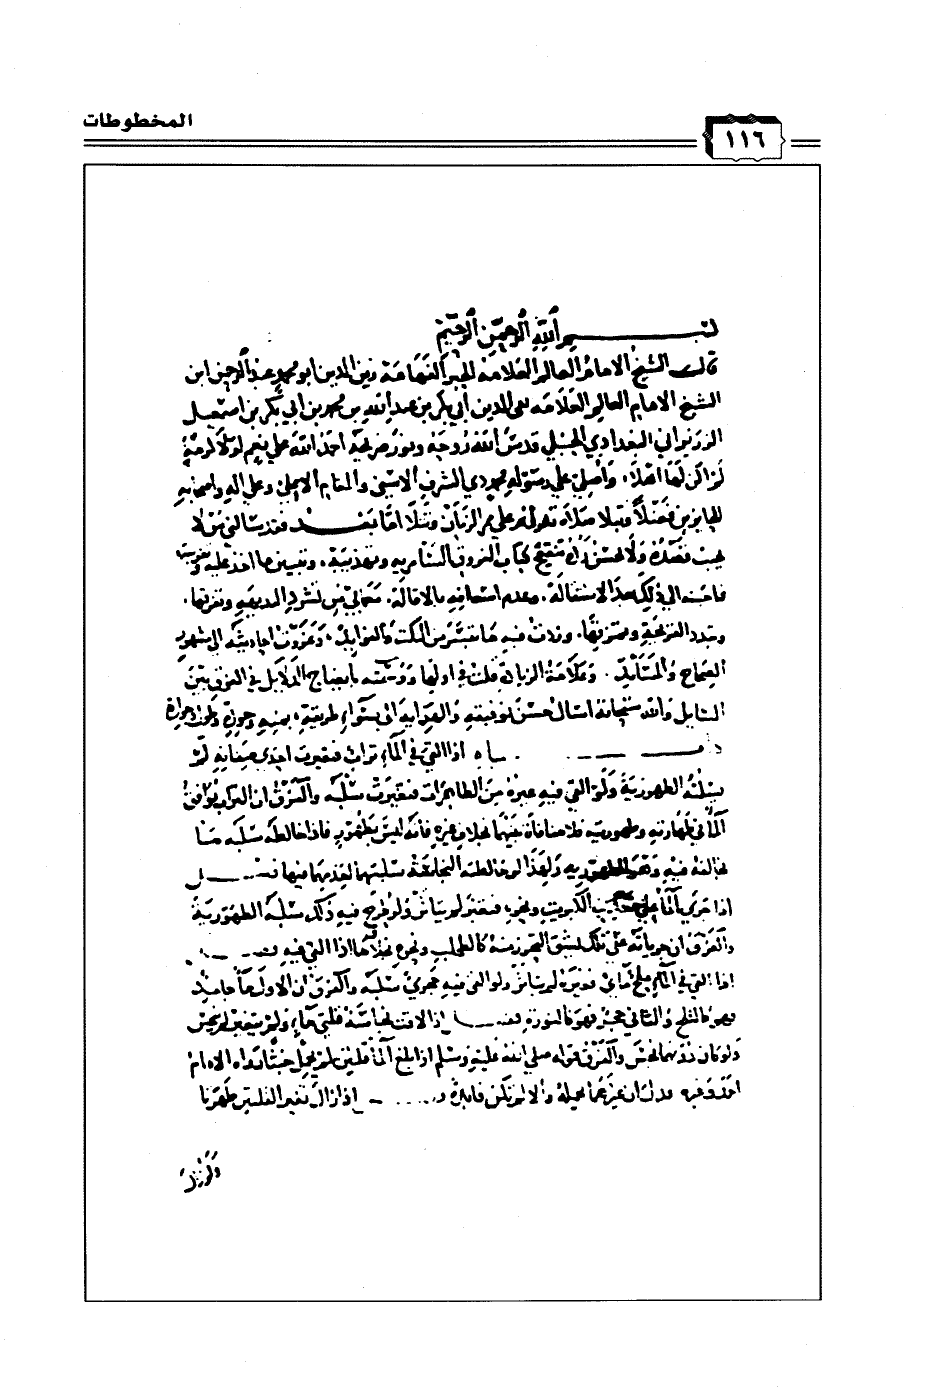 المخطوطات
١١٦
بسم الله الرحمن الرحيم
قال الشيخ الامام العالم العلامة الحبر الفهامة زين الدين ابو محمد عبد الرحمن ابن
الشيخ الامام العالم العلامه تقي الدين أبي بكر بن عبد الله بن محمد بن ابي بكر بن اسمعيل
الزريراني البغدادي الحنبلي قدس الله روحه ونور ضريحه احمد الله على نعم لولا كرمه
لم اكن لها اهلا واصلي على رسوله محمد ذي الشرف الاسنى والمقام الاعلى وعلى اله واصحابه
الحايزين فضلا ونبلا صلاة تعم على مر الزمان وتتلا اما بعد فقد سالني من لا
يخيب قصده ولا يحسن رده تنقيح كتاب الفروق السامريه وتهذيبه وتبيين ما اخذ عليه
فاجبته الى ذلك بعد الاستقالة وعدم اسعافه بالاقالة
وتبدد القريحة وتمزقها وزدت فيه ما تيسر من النكت والفوايد وعزوت احاديثه الى مشهور
الصحاح والمسانيد وعلامة الزيادة قلت في اولها ووسمته بايضاح الدلايل في الفرق بين
المسايل والله سبحانه اسال حسن توفيقه والهداية الى سواء طريقه بمنه وجوده
اذا القي في الماء تراب فتغيرت احدى صفاته لم
يسلبه الطهورية ولو القي فيه غيره من الطاهرات فتغيرت سلبه والفرق ان التراب يوافق
الماء في طهارته وطهوريته فلا منافاة بينهما بخلاف غيره فانه ليس بطهور فاذا خالطه سلبه ما
يخالفه فيه وهو الطهوريه ولهذا لو خالطته النجاسة سلبتهما لعدمهما فيها فصل
اذا جرى الماء على الكبريت ونحوه فتغير لم يتاثر ولو طرح فيه ذلك سلبه الطهورية
والفرق ان جريانه على تلك يشق التحرز منه كالطحلب ونحوه بخلاف ما اذا القي فيه فصل
اذا القي في الماء ملح مائي فغيره لم يتاثر ولو القي فيه حجري سلبه والفرق ان الاول ماء جامد
فهو كالثلج والثاني حجر فهو كالنورة فصل اذا لاقت نجاسة قلتي ماء ولم يتغير لم ينجس
ولو كان دونهما نجس والفرق قوله صلى الله عليه وسلم اذا بلغ الماء قلتين لم يحمل خبثا رواه الامام
احمد وغيره فدل ان غيرهما يحمله والا لم تكن فايدة فصل اذا زال تغير القلتين طهرتا